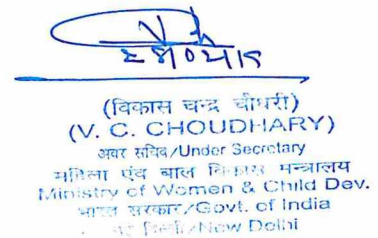 28/02/19
(विकास चन्द्र चौधरी)
(V. C. CHOUDHARY)
अवर सचिव/Under Secretary
महिला एंव बाल विकास मन्त्रालय
Ministry of Women & Child Dev.
भारत सरकार/Govt. of India
नई दिल्ली/New Delhi